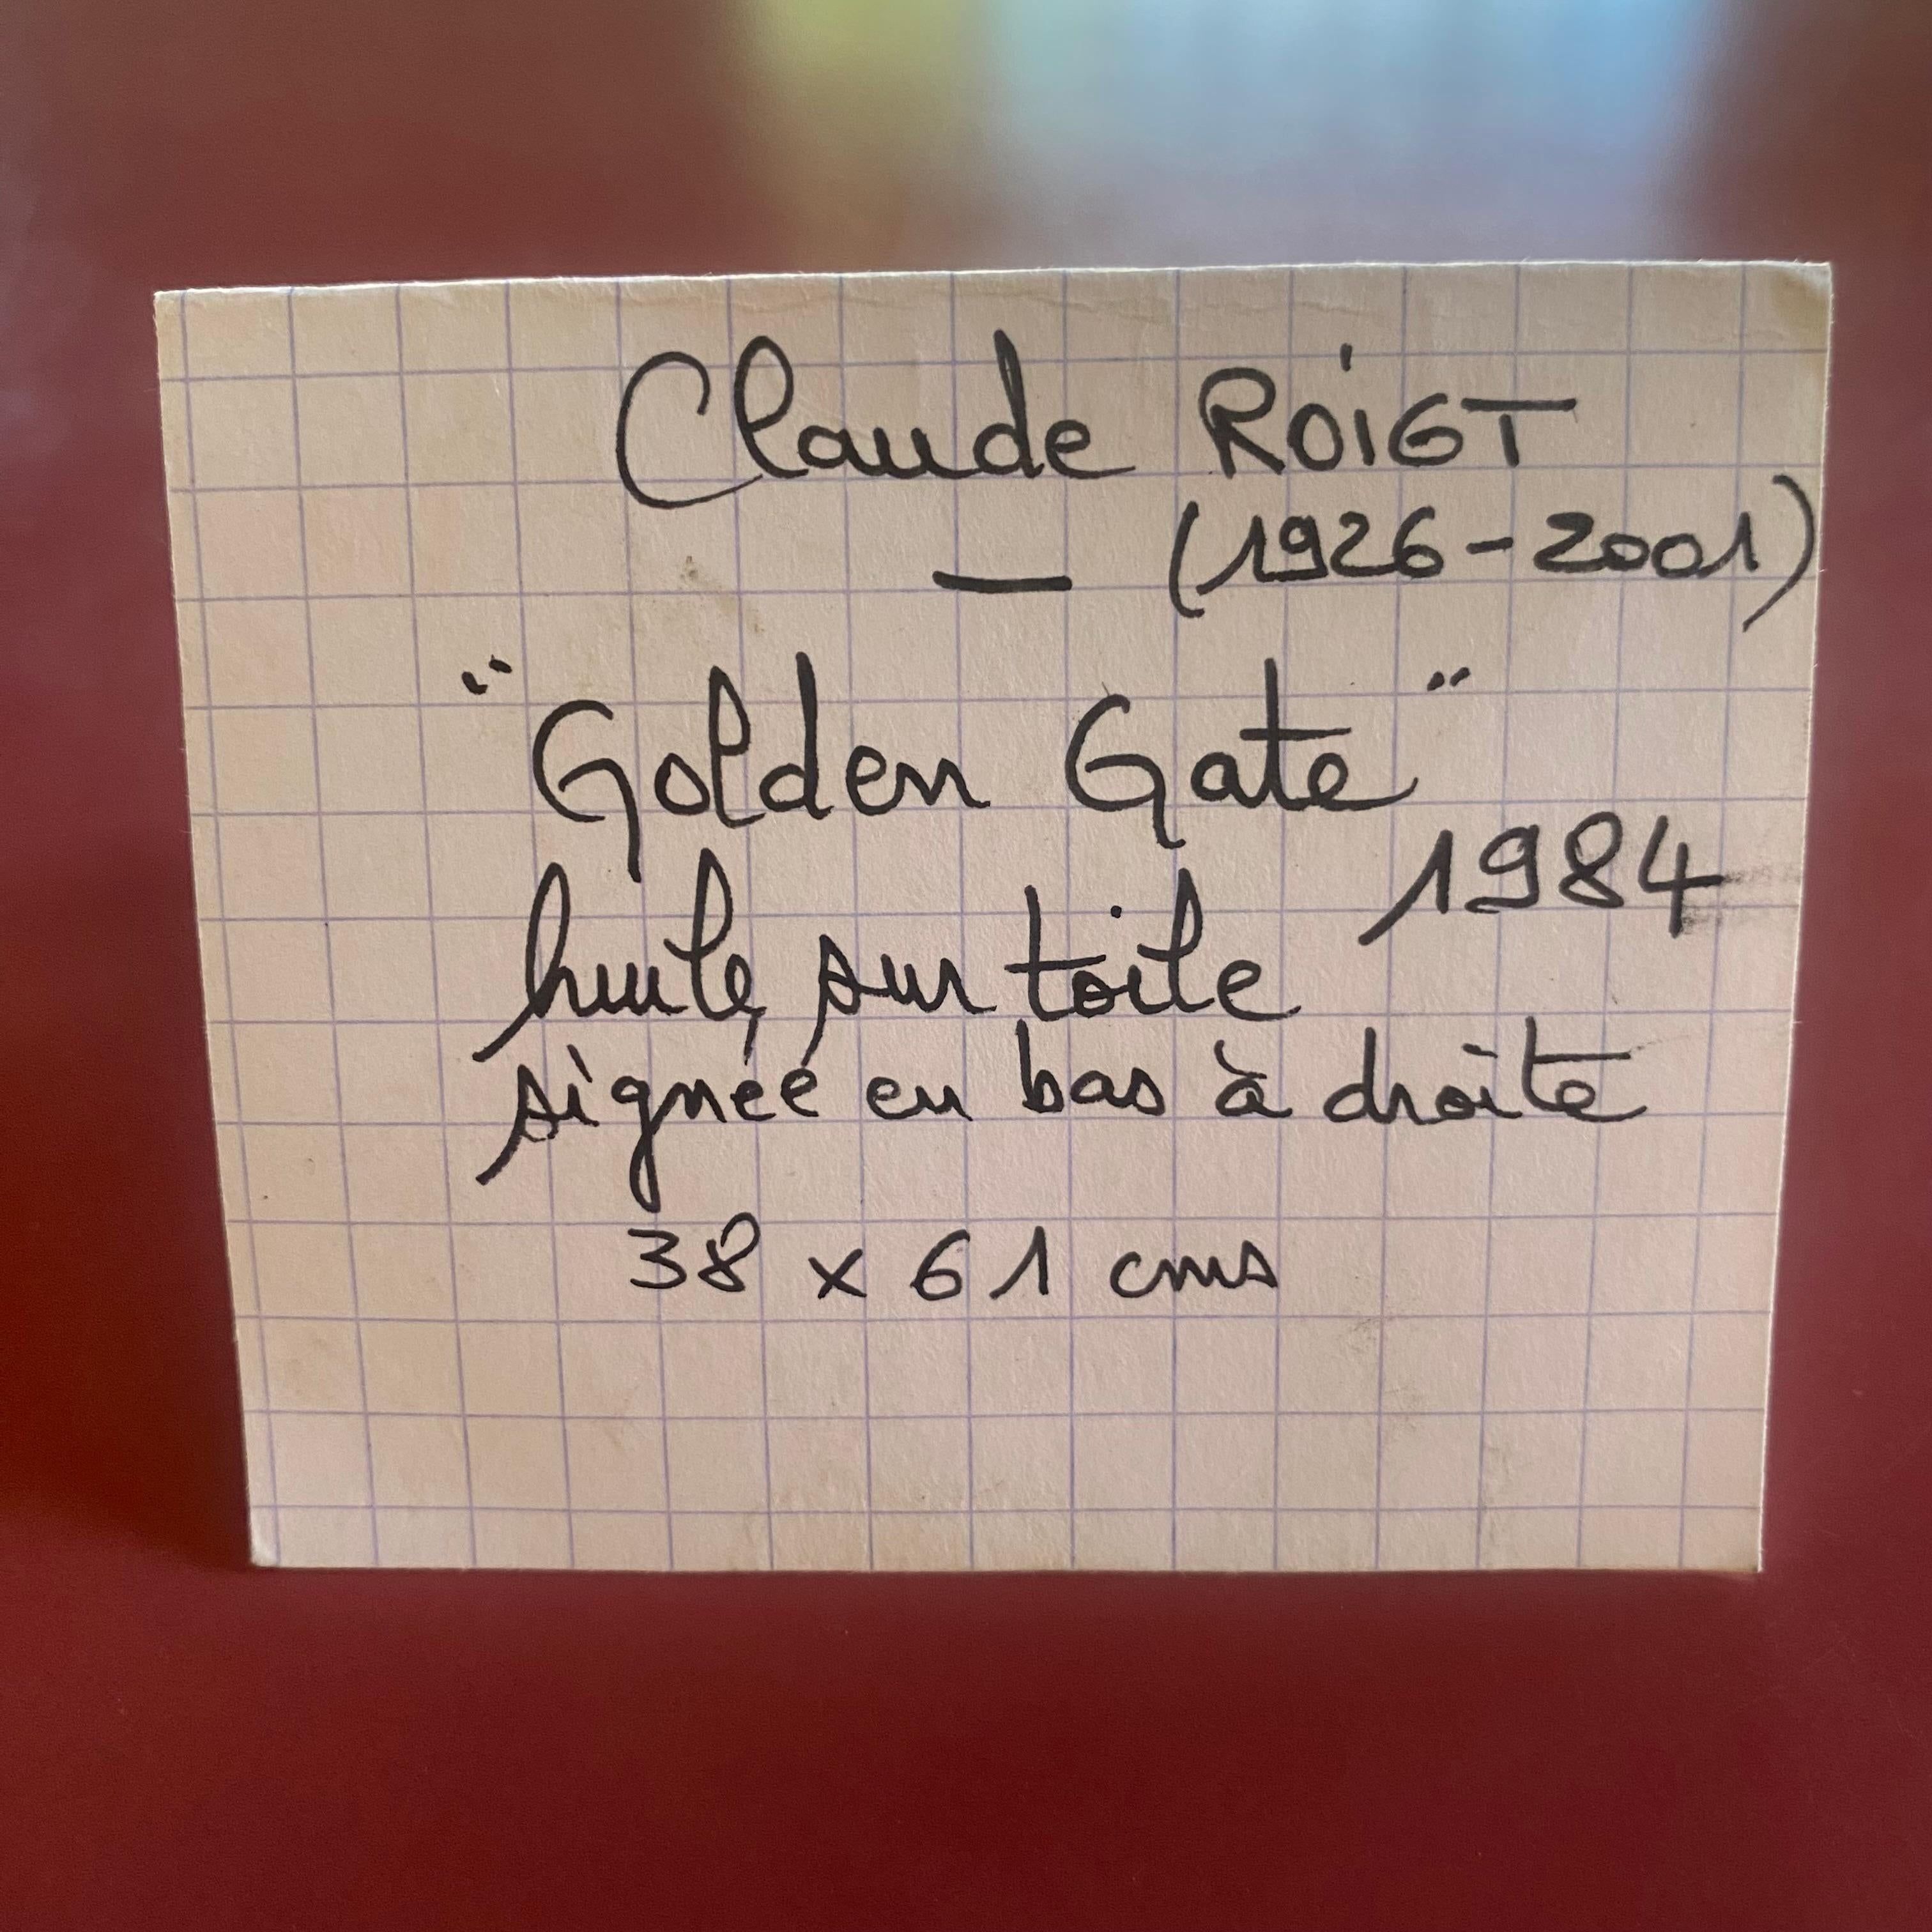 Claude ROIGT
— (1926-2001)
"Golden Gate"
1984
huile sur toile
signée en bas à droite
38 x 61 cms